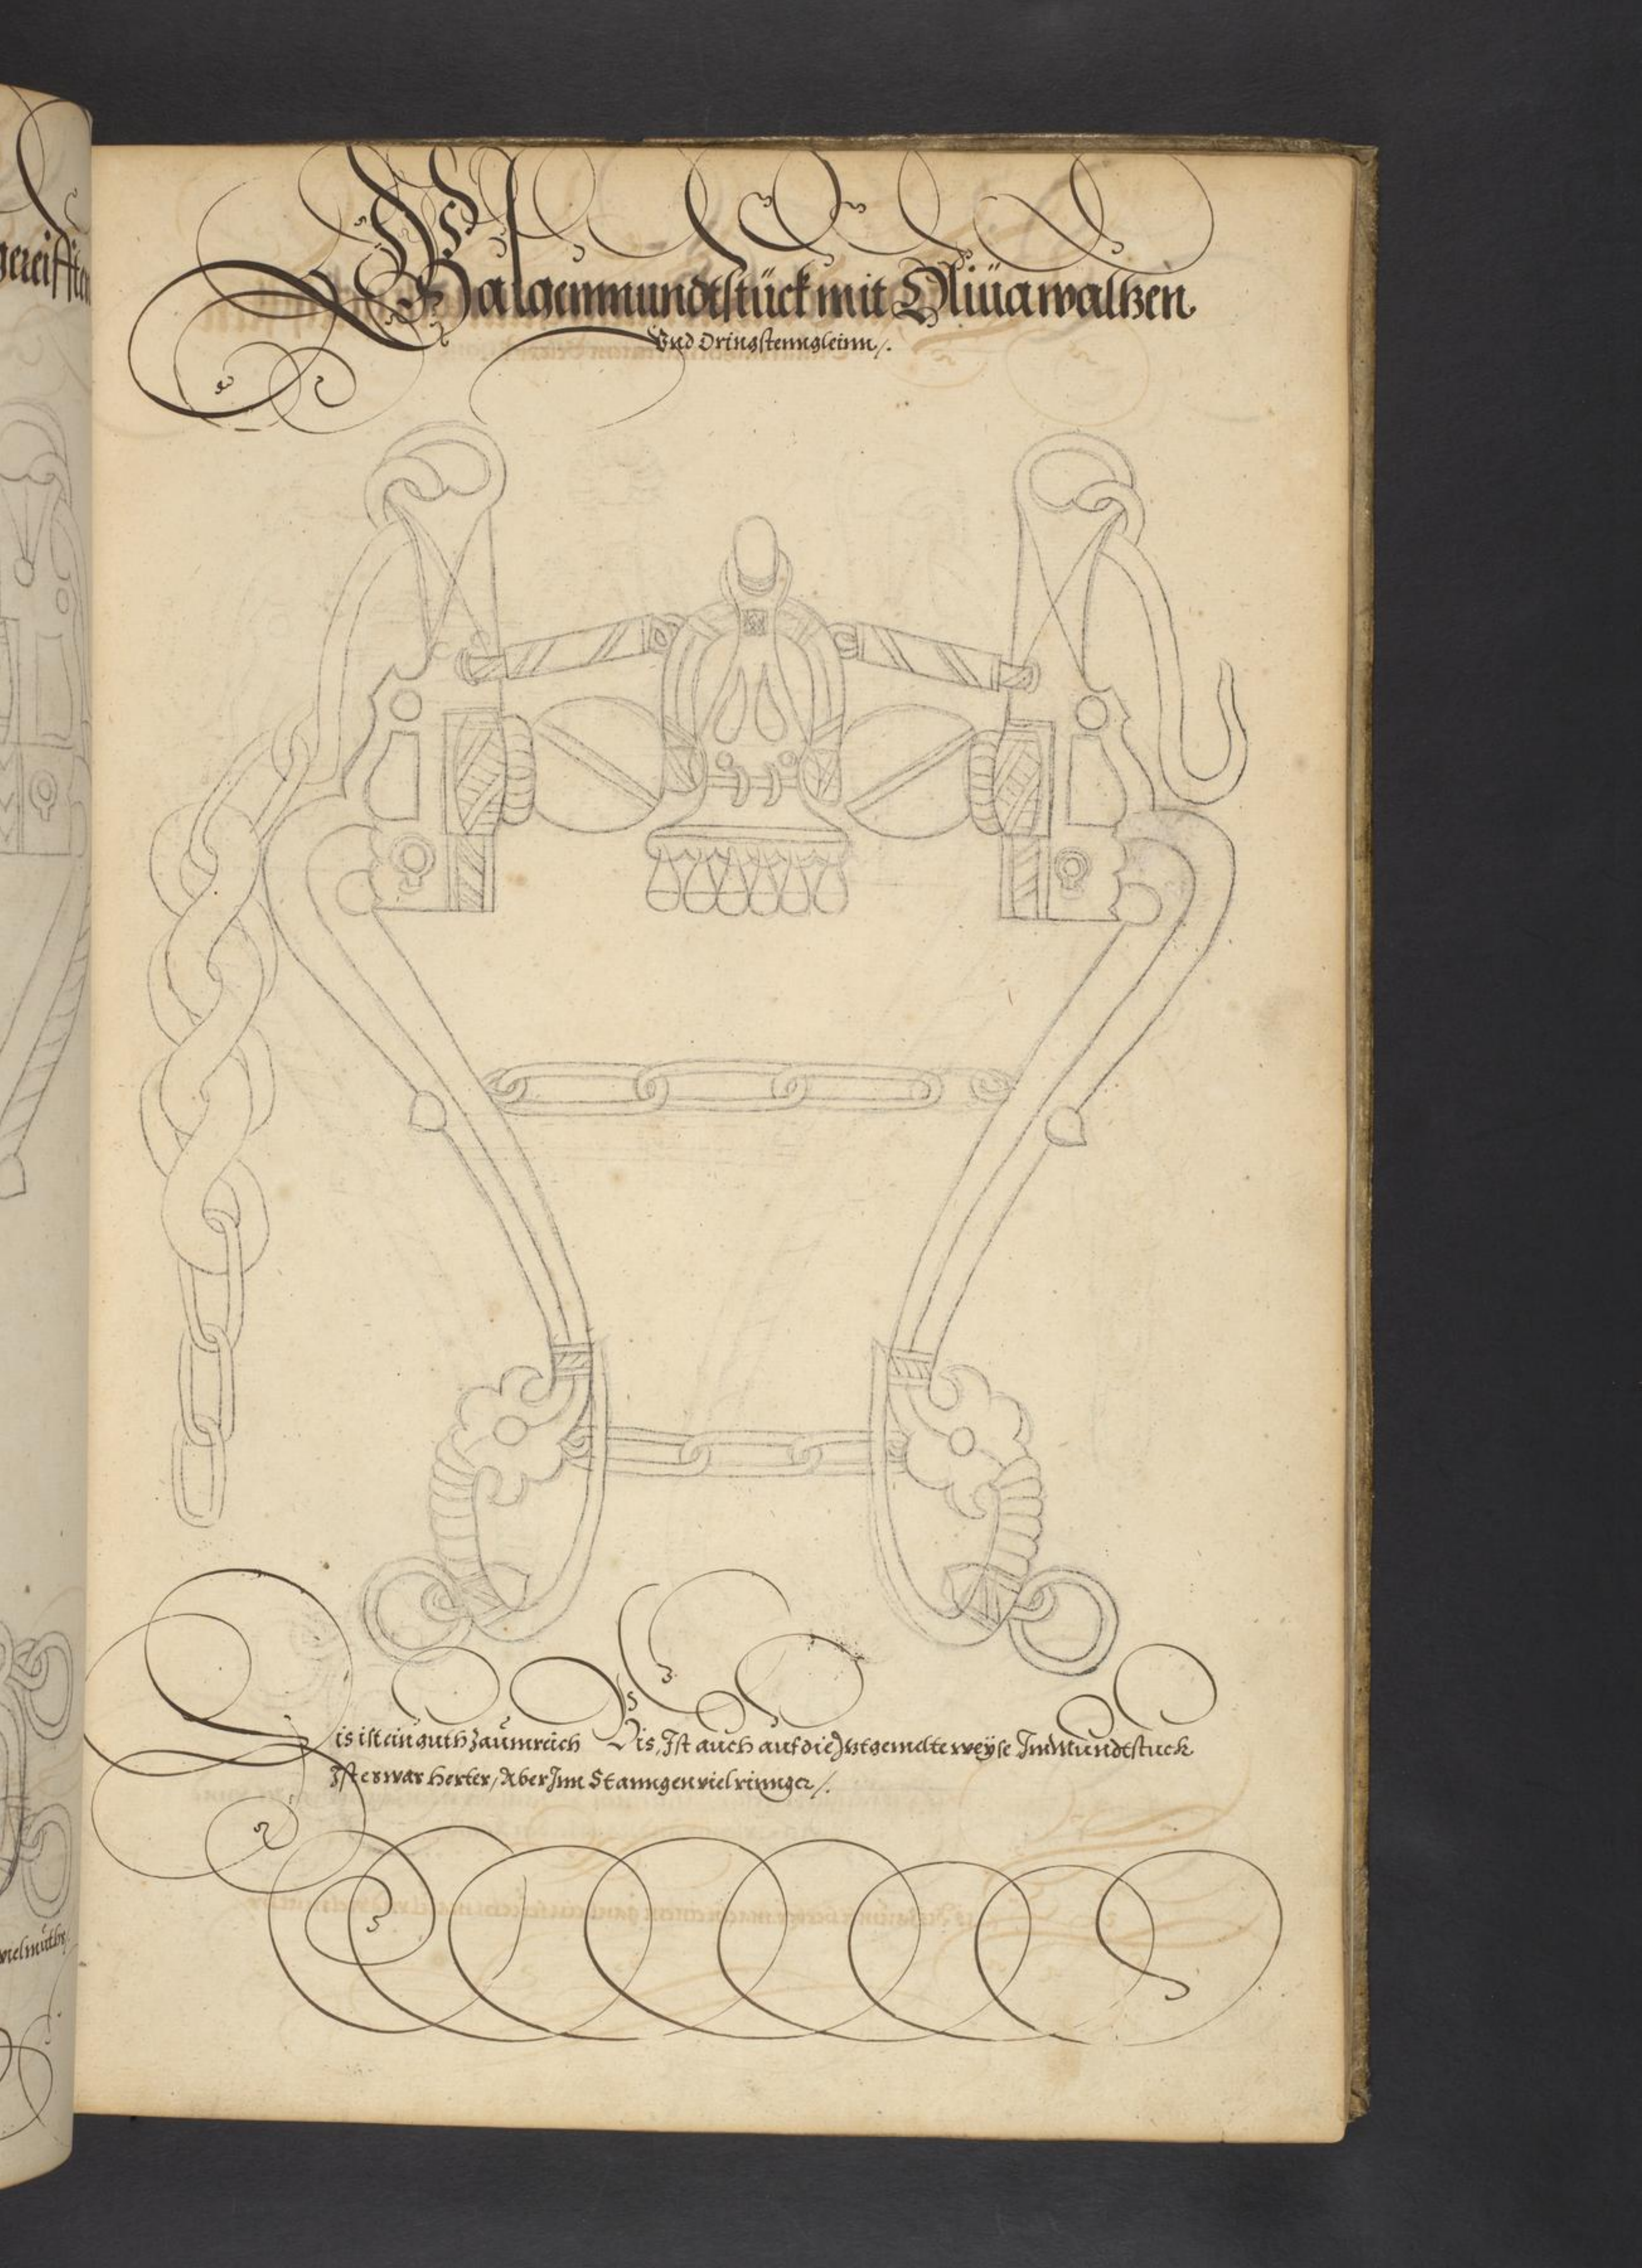 Galgenmundtstück mit Oliüa waltzen
Vnd Dringstenngleinn /.
Dis ist ein guth Zaümreich Dis, Ist auch auf die Jtztgemelte weÿse Im Mundtstuck
Ist etwas herter, Aber Inn Stanngen viel rinnger /.
gereifften
vielmüths